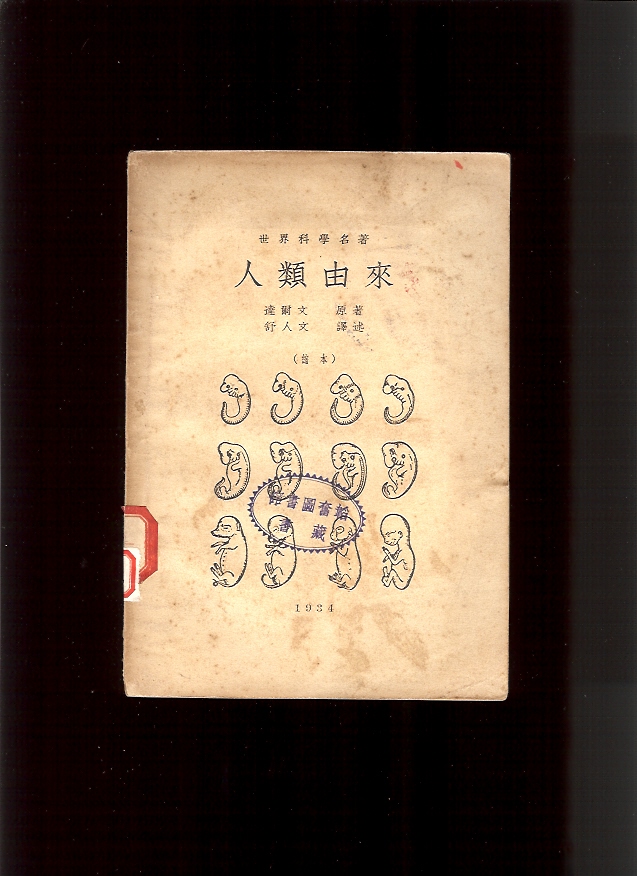 世界科學名著
人類由來
達爾文 原著
舒人文 譯述
(繪本)
韜奮圖書館
藏書
1934